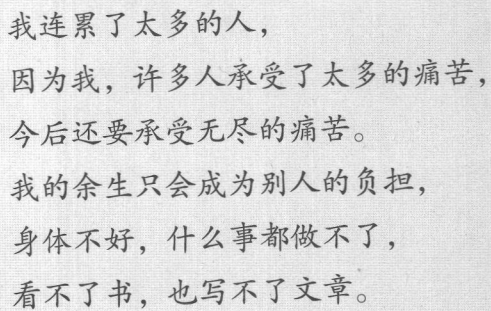 我连累了太多的人，
因为我，许多人承受了太多的痛苦，
今后还要承受无尽的痛苦。
我的余生只会成为别人的负担，
身体不好，什么事都做不了，
看不了书，也写不了文章。